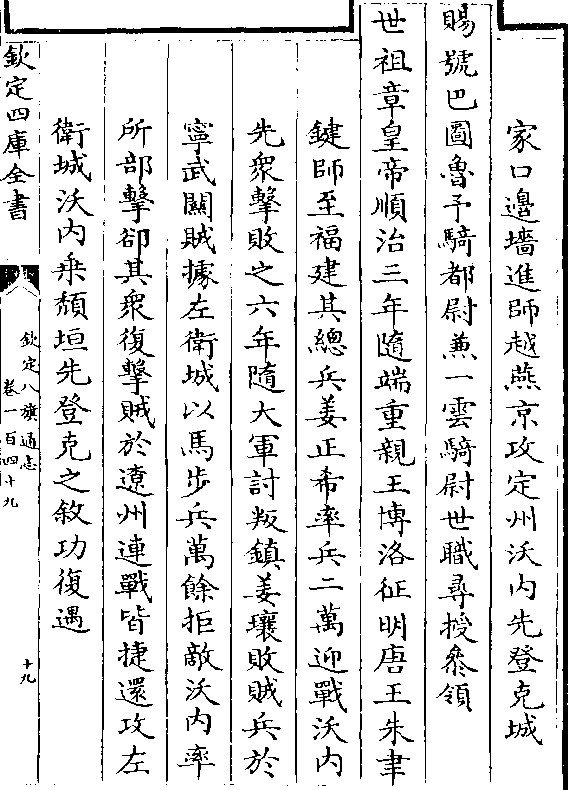 家口邊墻進師越燕京攻定州沃内先登克城
賜號巴圖魯予騎都尉兼一雲騎尉世職尋授叅領
世祖章皇帝順治三年隨端重親王博洛征明唐王朱聿
鍵師至福建其總兵姜正希率兵二萬迎戰沃内
先衆擊敗之六年隨大軍討叛鎮姜瓖敗賊兵於
寧武關賊據左衛城以馬步兵萬餘拒敵沃内率
所部擊卻其衆復擊賊於遼州連戰皆捷還攻左
衛城沃内乗頽垣先登克之敘功復遇
欽定四庫全書
欽定八旗通志
卷一百四十九
十九